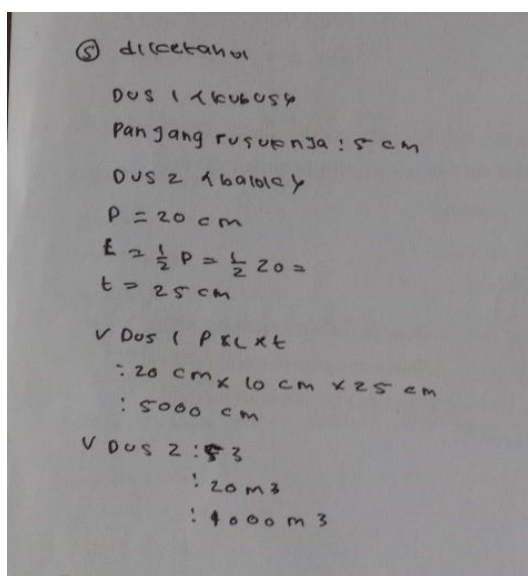 ⑤ diketahui
Dus 1 <kubus>
Panjang rusuknya : 5 cm
Dus 2 <balok>
P = 20 cm
ℓ = 1/2 P = 1/2 20 =
t = 25 cm
V Dus 1 P x L x t
: 20 cm x 10 cm x 25 cm
: 5000 cm
V Dus 2 : s3
: 20 m3
: 4000 m3